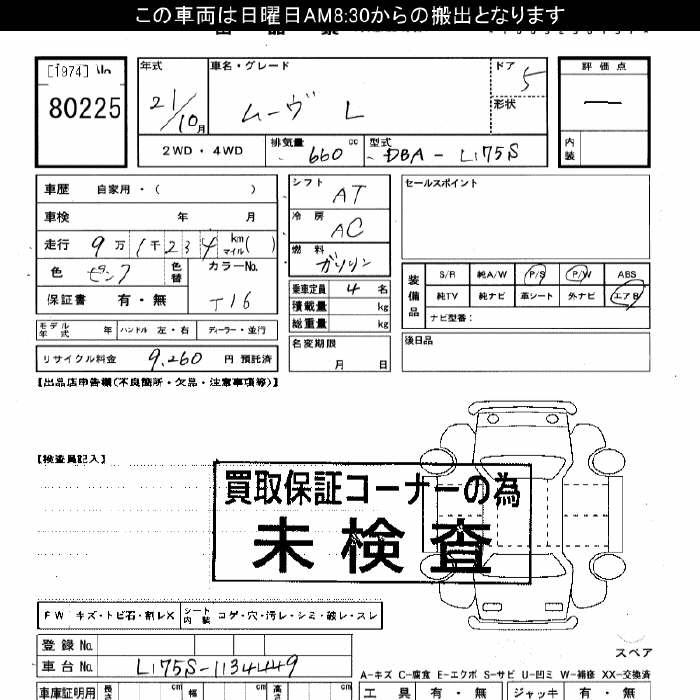 この車両は日曜日AM8:30からの搬出となります
[1974]
80225
年式
21/10月
車名・グレード
ムーヴ L
ドア
5
形状
評価点
—
内装
2WD・4WD
排気量
660 cc
型式
DBA-L175S
車歴 自家用・( )
車検 年 月
走行 9万1千234 km マイル( )
色
色替
カラーNo.
T16
保証書 有・無
シフト
AT
冷房
AC
燃料
ガソリン
セールスポイント
装備品
S/R 純A/W P/S P/W ABS
純TV 純ナビ 革シート 外ナビ エアB
ナビ型番:
乗車定員 4 名
積載量 kg
総重量 kg
モデル年式 年 ハンドル 左・右 ディーラー・並行
名変期限
月 日
後日品
リサイクル料金 9,260 円 預託済
【出品店申告欄(不良箇所・欠品・注意事項等)】
【検査員記入】
買取保証コーナーの為
未検査
FW キズ・トビ石・割レX
シート内装 コゲ・穴・汚レ・シミ・破レ・スレ
登録No.
車台No. L175S-1134449
スペア
A-キズ C-腐食 E-エクボ S-サビ U-凹ミ W-補修 XX-交換済
車庫証明用 長さ cm 幅 cm 高さ cm
工具 有・無 ジャッキ 有・無